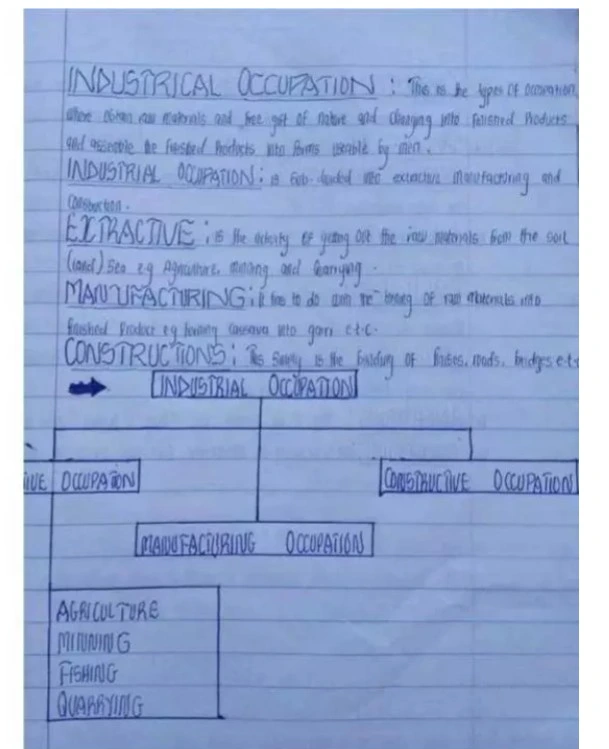 INDUSTRICAL OCCUPATION : This is the types of occupation
where obtain raw materials and free gift of nature and changing into finished Products
and assemble the finished Products into forms useable by men.
INDUSTRIAL OCCUPATION : is Sub-divided into extractive manufacturing and
Construction.
EXTRACTIVE : is the activity of getting out the raw materials from the soil
(land) Sea e.g Agriculture, mining and
MANUFACTURING : it has to do with the turning of raw materials into
finished Product eg turning cassava into garri e.t.c.
CONSTRUCTIONS : This is the building of houses, roads, bridges e.t.
INDUSTRIAL OCCUPATION
TIVE OCCUPATION
CONSTRUCTIVE OCCUPATION
MANUFACTURING OCCUPATION
AGRICULTURE
MINNING
FISHING
QUARRYING